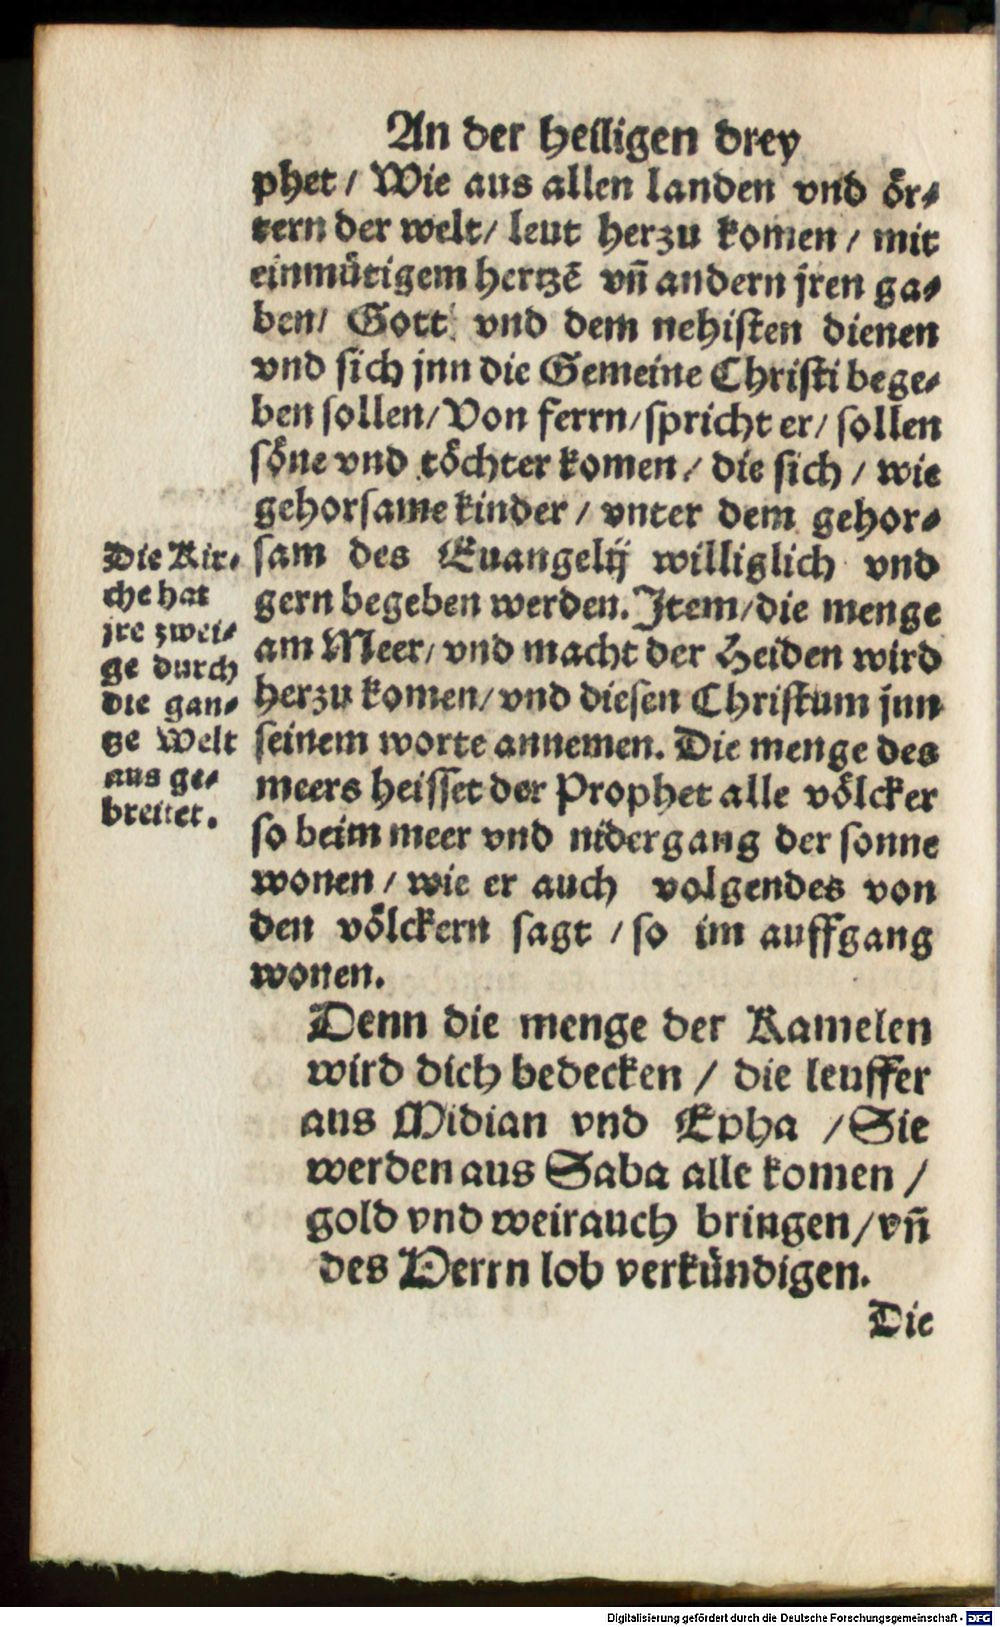 An der heiligen drey
phet / Wie aus allen landen vnd ör⸗
tern der welt / leut herzu komen / mit
einmütigem hertzē vñ andern jren ga⸗
ben / Gott vnd dem nehisten dienen
vnd sich jnn die Gemeine Christi bege⸗
ben sollen / Von ferrn / spricht er / sollen
söne vnd töchter komen / die sich / wie
gehorsame kinder / vnter dem gehor⸗
sam des Euangelij williglich vnd
gern begeben werden. Item / die menge
am Meer / vnd macht der Heiden wird
herzu komen / vnd diesen Christum jnn
seinem worte annemen. Die menge des
meers heisset der Prophet alle völcker
so beim meer vnd nidergang der sonne
wonen / wie er auch volgendes von
den völckern sagt / so im auffgang
wonen.
Die Kir⸗
che hat
jre zwei⸗
ge durch
die gan⸗
tze Welt
aus ge⸗
breitet.
Denn die menge der Kamelen
wird dich bedecken / die leuffer
aus Midian vnd Epha / Sie
werden aus Saba alle komen /
gold vnd weirauch bringen / vñ
des Herrn lob verkündigen.
Die
Digitalisierung gefördert durch die Deutsche Forschungsgemeinschaft - DFG